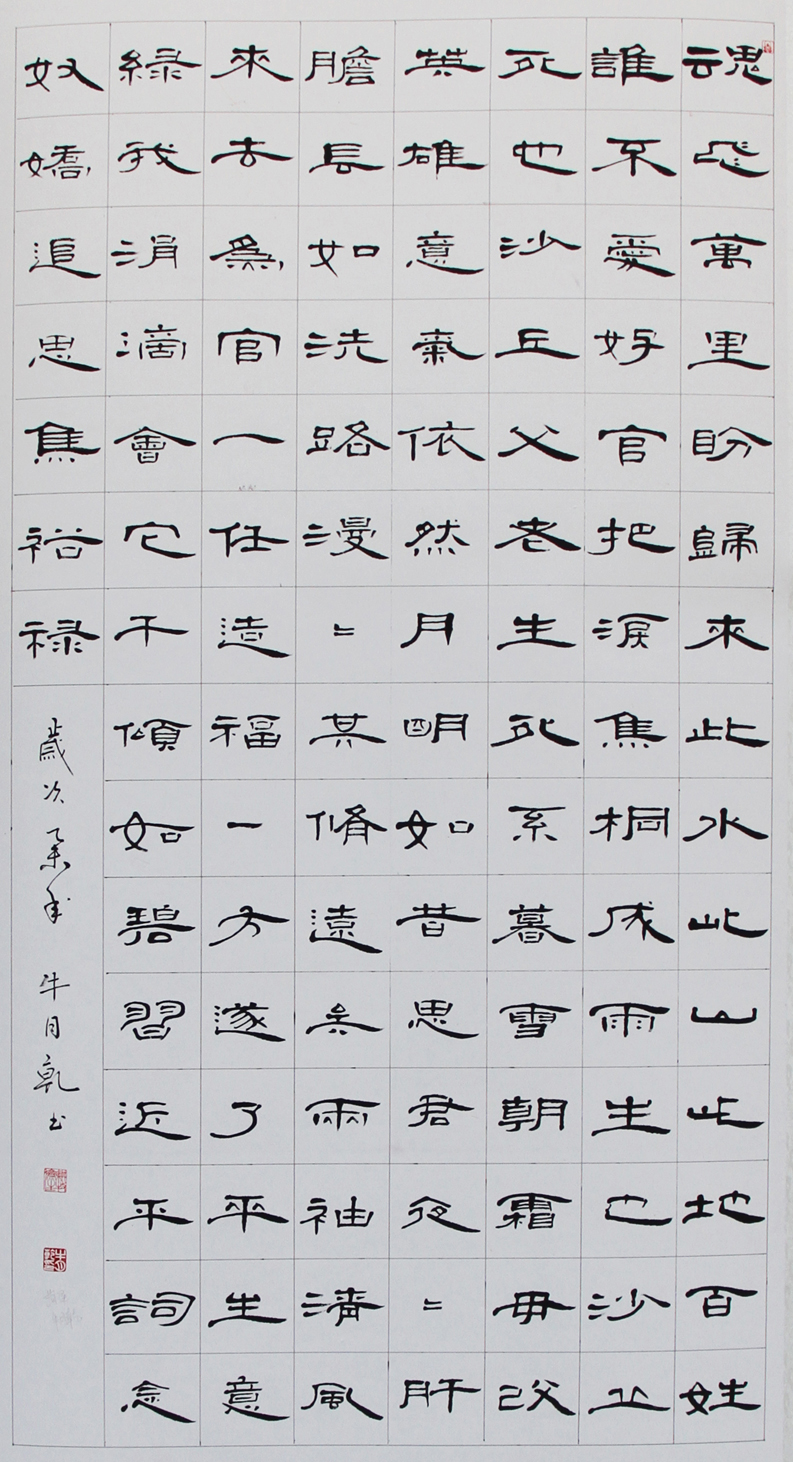 魂飛萬里盼歸來此水此山此地百姓
誰不愛好官把淚焦桐成雨生也沙丘
死也沙丘父老生死系暮雪朝霜毋改
英雄意氣依然月明如昔思君夜〻肝
膽長如洗路漫〻其脩遠矣兩袖清風
來去為官一任造福一方遂了平生意
綠我涓滴會它千頃如碧習近平詞念
奴嬌追思焦裕禄
歲次乙未年 牛月乾书